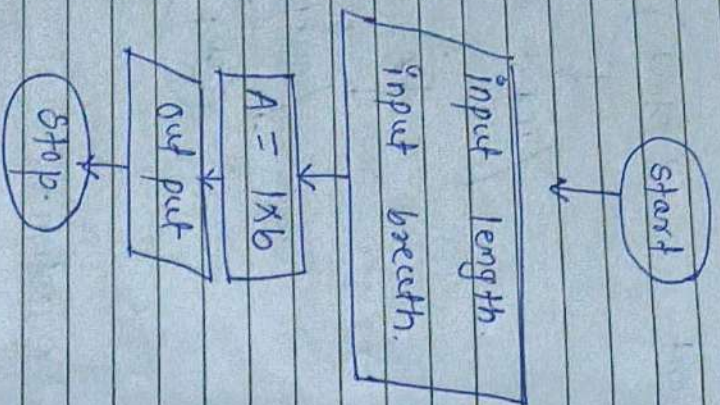 start
input length.
input breath.
A = l×b
out put
Stop.